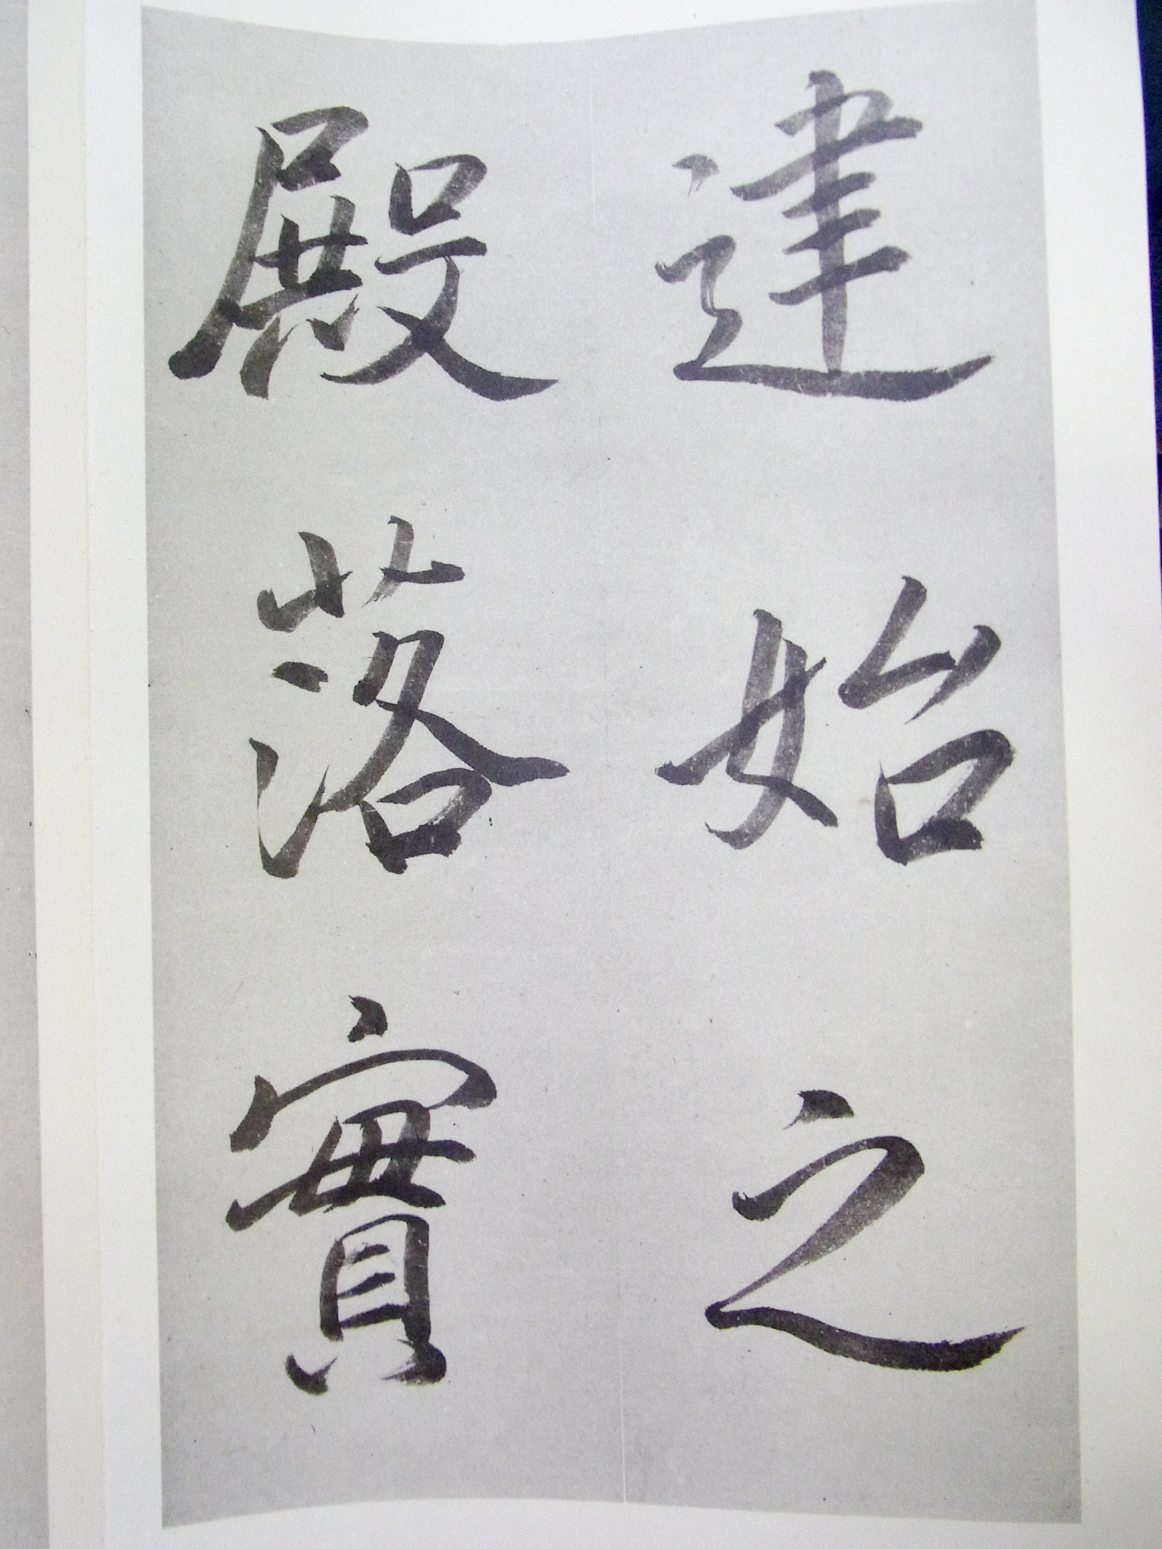 建始之
殿落實